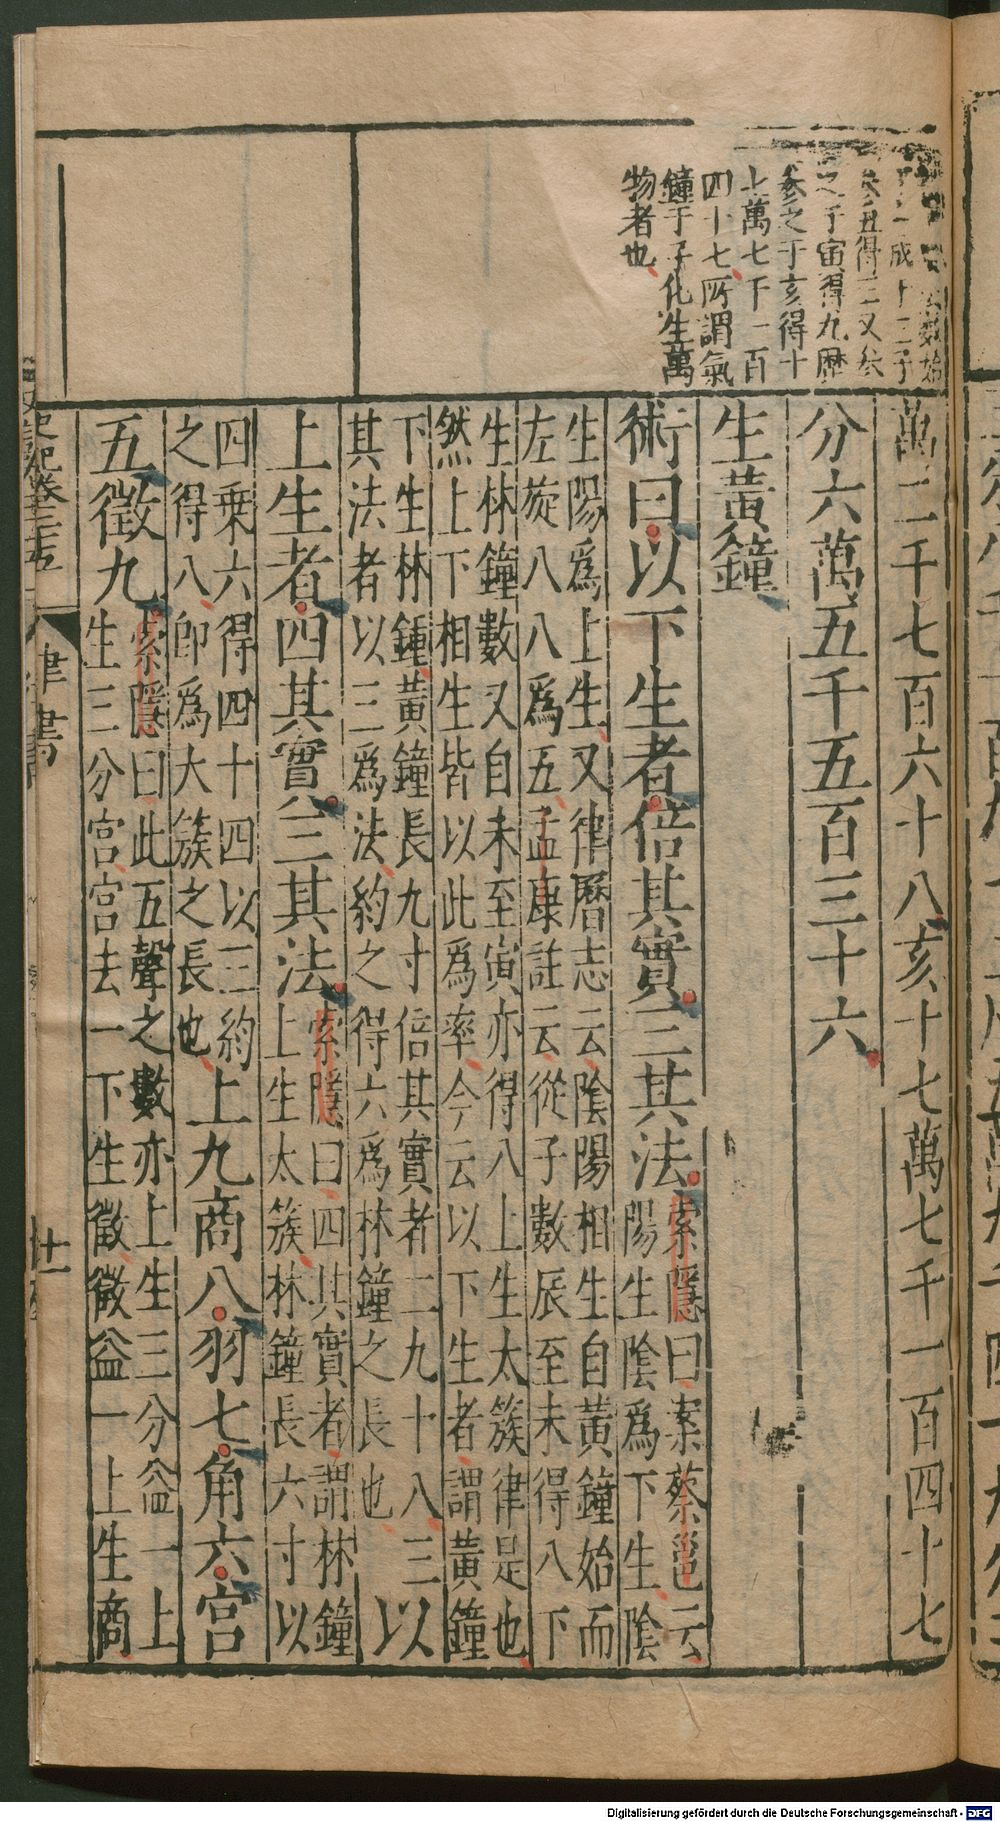 數始
成十二子
參丑得三又參
之于寅得九歷
參之于亥得十
七萬七千一百
四十七所謂氣
鐘于子化生萬
物者也
萬二千七百六十八亥十七萬七千一百四十七
分六萬五千五百三十六
生黃鐘
術曰以下生者倍其實三其法
索隱曰案蔡邕云
陽生陰爲下生陰
生陽爲上生又律曆志云陰陽相生自黃鐘始而
左旋八八爲五孟康註云從子數辰至未得八下
生林鐘數又自未至寅亦得八上生太簇律是也
然上下相生皆以此爲率今云以下生者謂黃鐘
下生林鍾黃鐘長九寸倍其實者二九十八三
其法者以三爲法約之得六爲林鐘之長也
以
上生者四其實三其法
索隱曰四其實者謂林鐘
上生太簇林鐘長六寸以
四乘六得四十四以三約
之得八卽爲大簇之長也
上九商八羽七角六宮
五徵九
索隱曰此五聲之數亦上生三分益一上
生三分宮宮去一下生徵徵益一上生商
史記卷二十五
律書
十一
Digitalisierung gefördert durch die Deutsche Forschungsgemeinschaft - DFG